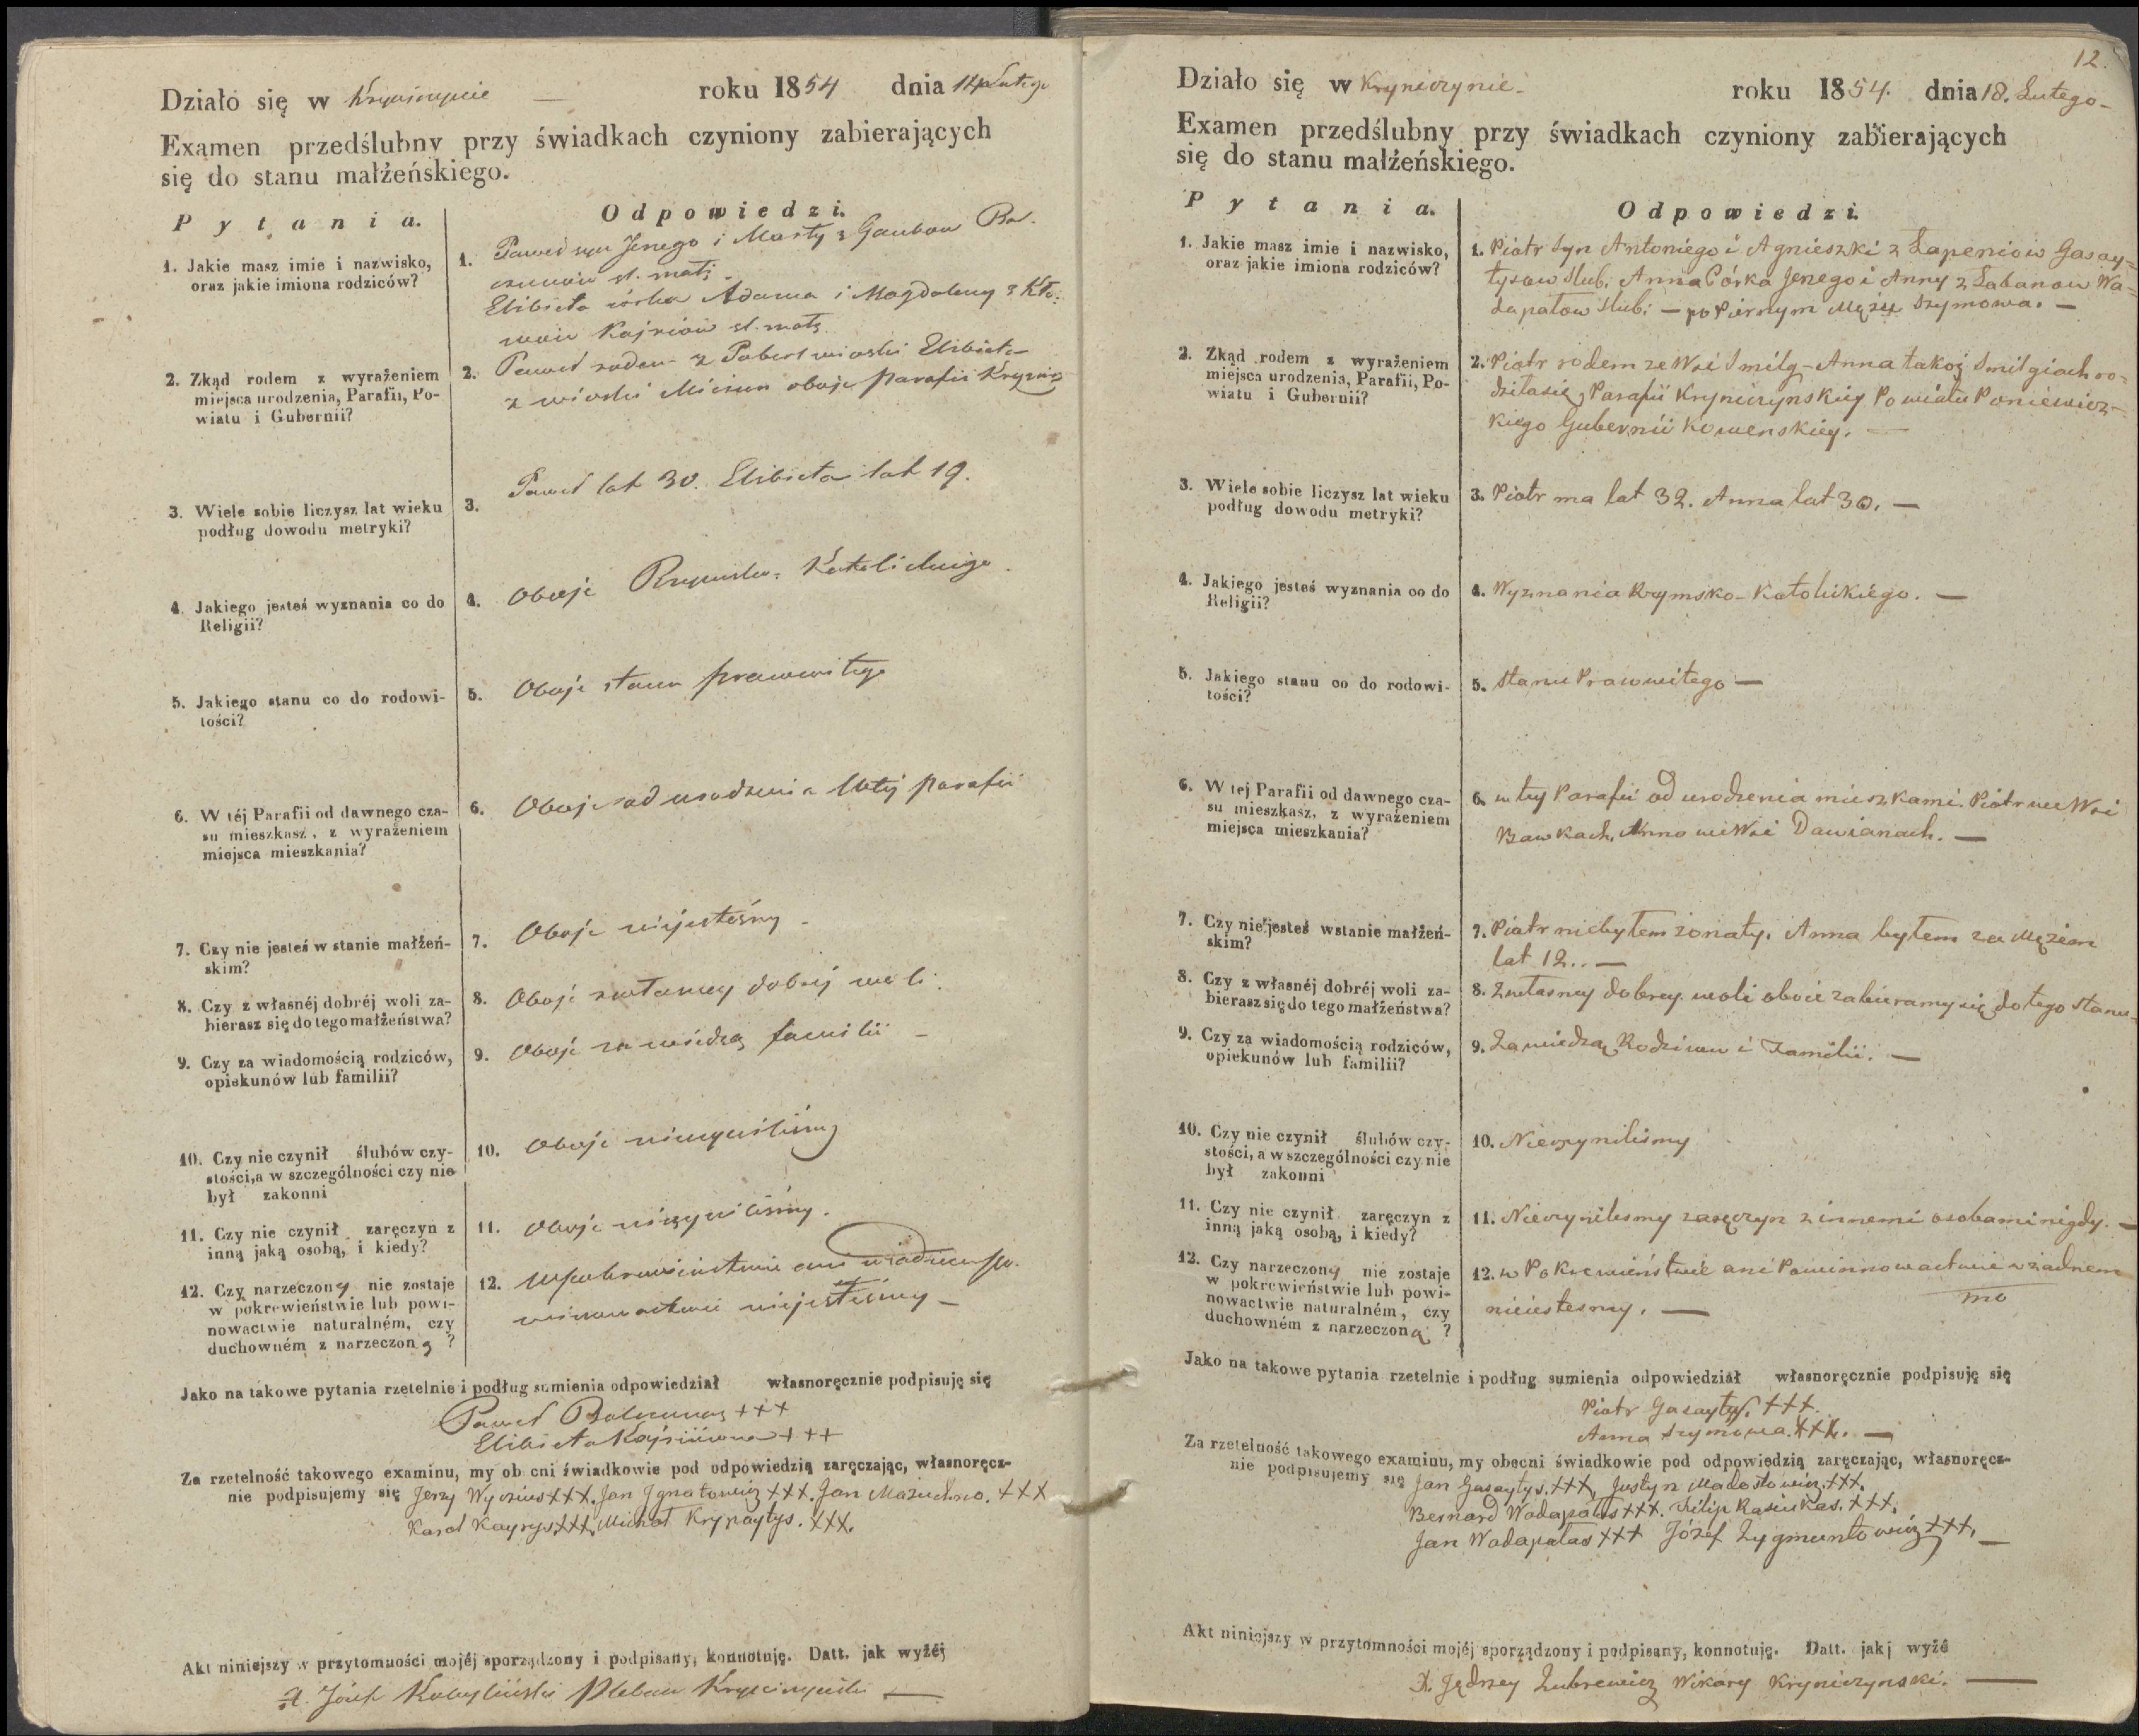 Działo się w Kryniczynie — roku 1854 dnia 14 Lutego
Examen przedślubny przy świadkach czyniony zabierających
się do stanu małżeńskiego.
Pytania.
Odpowiedzi.
1. Jakie masz imie i nazwisko,
oraz jakie imiona rodziców?
1. Paweł syn Jerzego i Marty z
śl. małż.
Elżbieta córka Adama i Magdaleny z
śl. małż.
2. Zkąd rodem z wyrażeniem
miejsca urodzenia, Parafii, Po-
wiatu i Gubernii?
2. Paweł rodem z wioski Elżbieta
z wioski oboje parafii
3. Wiele sobie liczysz lat wieku
podług dowodu metryki?
3. Paweł lat 30. Elżbieta lat 19.
4. Jakiego jesteś wyznania co do
Religii?
4. Oboje Rzymsko-Katolickiego.
5. Jakiego stanu co do rodowi-
tości?
5. Oboje stanu prawowitego
6. W téj Parafii od dawnego cza-
su mieszkasz, z wyrażeniem
miejsca mieszkania?
6. Oboje od urodzenia w tej parafii
7. Czy nie jesteś w stanie małżeń-
skim?
7. Oboje niejesteśmy —
8. Czy z własnéj dobréj woli za-
bierasz się do tego małżeństwa?
8. Oboje z własney dobrej woli.
9. Czy za wiadomością rodziców,
opiekunów lub familii?
9. Oboje za wiedzą familii —
10. Czy nie czynił ślubów czy-
stości, a w szczególności czy nie
był zakonni
10. Oboje nieczyniliśmy
11. Czy nie czynił zaręczyn z
inną jaką osobą, i kiedy?
11. Oboje nieczyniliśmy.
12. Czy narzeczony nie zostaje
w pokrewieństwie lub powi-
nowactwie naturalném, czy
duchowném z narzeczoną ?
12. W pokrewieństwie ani w żadnem po-
winowactwie niejesteśmy —
Jako na takowe pytania rzetelnie i podług sumienia odpowiedział własnoręcznie podpisuję się
Paweł +++
Elżbieta +++
Za rzetelność takowego examinu, my ob cni świadkowie pod odpowiedzią zaręczając, własnoręcz-
nie podpisujemy się Jerzy +++. Jan Ignatowicz +++. Jan +++
Karol Kayrys +++. Michał Krypaytys. +++.
Akt niniejszy w przytomności mojéj sporządzony i podpisany, konnotuję. Datt. jak wyżéj
X. Józef Pleban —
12.
Działo się w Kryniczynie — roku 1854. dnia 18. Lutego —
Examen przedślubny przy świadkach czyniony zabierających
się do stanu małżeńskiego.
Pytania.
Odpowiedzi.
1. Jakie masz imie i nazwisko,
oraz jakie imiona rodziców?
1. Piotr Syn Antoniego i Agnieszki z Łapeniow Gasay-
tysow Slub. Anna Córka Jerzego i Anny z Łabanow Wa-
dapałow Slub: — po Pierszym Mężu Szymowa. —
2. Zkąd rodem z wyrażeniem
miejsca urodzenia, Parafii, Po-
wiatu i Gubernii?
2. Piotr rodem ze Wsi Smilg — Anna takoż Smilgiach ro-
dziłasię, Parafii Kryniczynskiey Powiatu Poniewież-
kiego Gubernii Kowenskiey. —
3. Wiele sobie liczysz lat wieku
podług dowodu metryki?
3. Piotr ma lat 32. Anna lat 30. —
4. Jakiego jesteś wyznania co do
Religii?
4. Wyznania Rzymsko-Katolickiego. —
5. Jakiego stanu co do rodowi-
tości?
5. Stanu Prawowitego —
6. W tej Parafii od dawnego cza-
su mieszkasz, z wyrażeniem
miejsca mieszkania?
6. w tey Parafii od urodzenia mieszkami. Piotr we Wsi
Bawkach, Anna we Wsi Dawianach. —
7. Czy nie jesteś wstanie małżeń-
skim?
7. Piotr niebyłem żonaty. Anna byłem za Mężem
lat 12.. —
8. Czy z własnéj dobréj woli za-
bierasz się do tego małżeństwa?
8. Zwłasney dobrey woli oboie zabieramy się do tego Stanu —
9. Czy za wiadomością rodziców,
opiekunów lub familii?
9. Zawiedzą Rodziców i Familii. —
10. Czy nie czynił ślubów czy-
stości, a w szczególności czy nie
był zakonni
10. Nieczyniliśmy
11. Czy nie czynił zaręczyn z
inną jaką osobą, i kiedy?
11. Nieczyniliśmy zaręczyn z innemi osobami nigdy. —
12. Czy narzeczony nie zostaje
w pokrewieństwie lub powi-
nowactwie naturalném, czy
duchowném z narzeczoną ?
12. w Pokrewieństwie ani Powinnowactwie w żadnem
nieiestesmy. —
Jako na takowe pytania rzetelnie i podług sumienia odpowiedział własnoręcznie podpisuję się
Piotr Gasaytys. +++.
Anna Szymowa. +++. —
Za rzetelność takowego examinu, my obecni świadkowie pod odpowiedzią zaręczając, własnoręcz-
nie podpisujemy się Jan Gasaytys. +++, Justyn +++.
Bernard Wadapałas +++. Filip Rasiukas. +++.
Jan Wadapałas +++ Józef Zygmuntowicz +++. —
Akt niniejszy w przytomności mojéj sporządzony i podpisany, konnotuję. Datt. jakj wyżé
X. Jędrzey Zubrewicz Wikary Kryniczynski. —